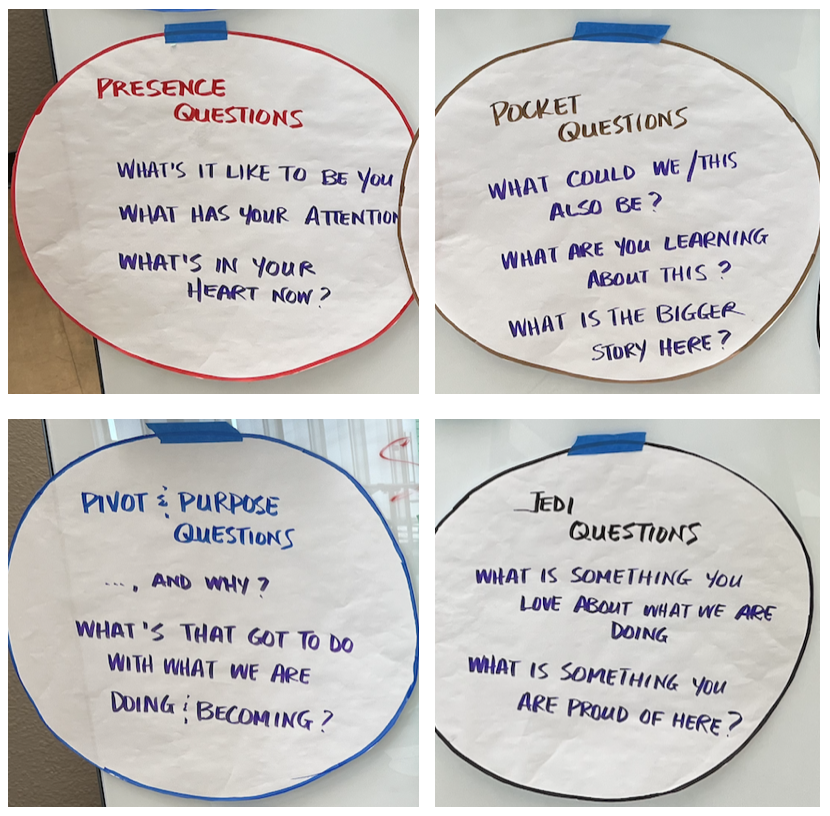 PRESENCE
QUESTIONS
WHAT'S IT LIKE TO BE YOU
WHAT HAS YOUR ATTENTION
WHAT'S IN YOUR
HEART NOW?
POCKET
QUESTIONS
WHAT COULD WE/THIS
ALSO BE?
WHAT ARE YOU LEARNING
ABOUT THIS?
WHAT IS THE BIGGER
STORY HERE?
PIVOT & PURPOSE
QUESTIONS
..., AND WHY?
WHAT'S THAT GOT TO DO
WITH WHAT WE ARE
DOING & BECOMING?
JEDI
QUESTIONS
WHAT IS SOMETHING YOU
LOVE ABOUT WHAT WE ARE
DOING
WHAT IS SOMETHING YOU
ARE PROUD OF HERE?